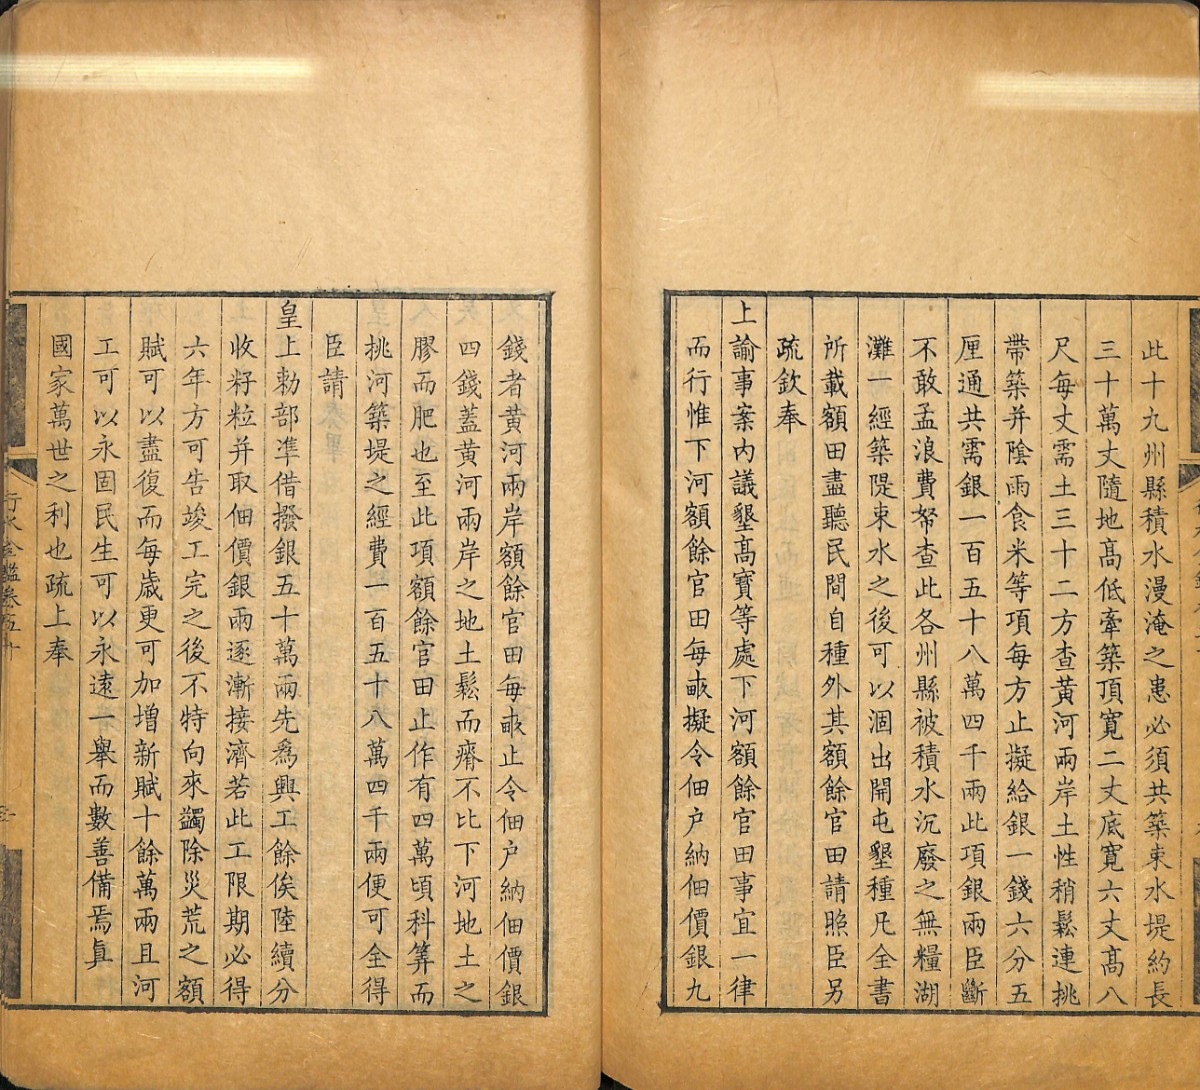 此十九州縣積水漫淹之患必須共築束水堤約長
三十萬丈隨地高低牽築頂寬二丈底寬六丈高八
尺每丈需土三十二方查黃河兩岸土性稍鬆連挑
帶築并陰雨食米等項每方止擬給銀一錢六分五
厘通共需銀一百五十八萬四千兩此項銀兩臣斷
不敢孟浪費帑查此各州縣被積水沉廢之無糧湖
灘一經築隄束水之後可以涸出開屯墾種凡全書
所載額田盡聽民間自種外其額餘官田請照臣另
疏欽奉
上諭事案內議墾高寶等處下河額餘官田事宜一律
而行惟下河額餘官田每畝擬令佃户納佃價銀九
錢者黃河兩岸額餘官田每畝止令佃户納佃價銀
四錢蓋黃河兩岸之地土鬆而瘠不比下河地土之
膠而肥也至此項額餘官田止作有四萬頃科筭而
挑河築堤之經費一百五十八萬四千兩便可全得
臣請
皇上勅部准借撥銀五十萬兩先爲興工餘俟陸續分
收籽粒并取佃價銀兩逐漸接濟若此工限期必得
六年方可告竣工完之後不特向來蠲除災荒之額
賦可以盡復而每歲更可加增新賦十餘萬兩且河
工可以永固民生可以永遠一舉而數善備焉真
國家萬世之利也疏上奉
行水金鑑卷五十